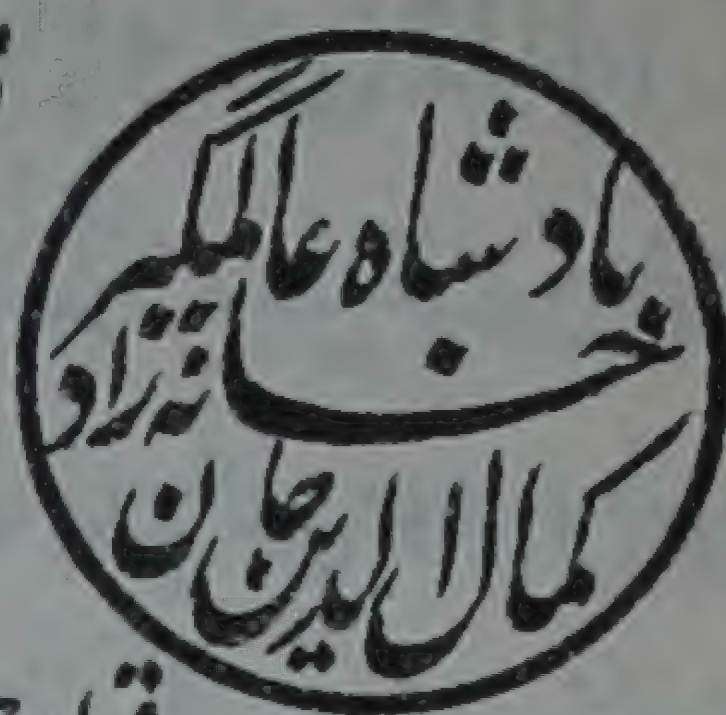 بادشاه عالمگیر
خانه زاد
کمال الدین خان